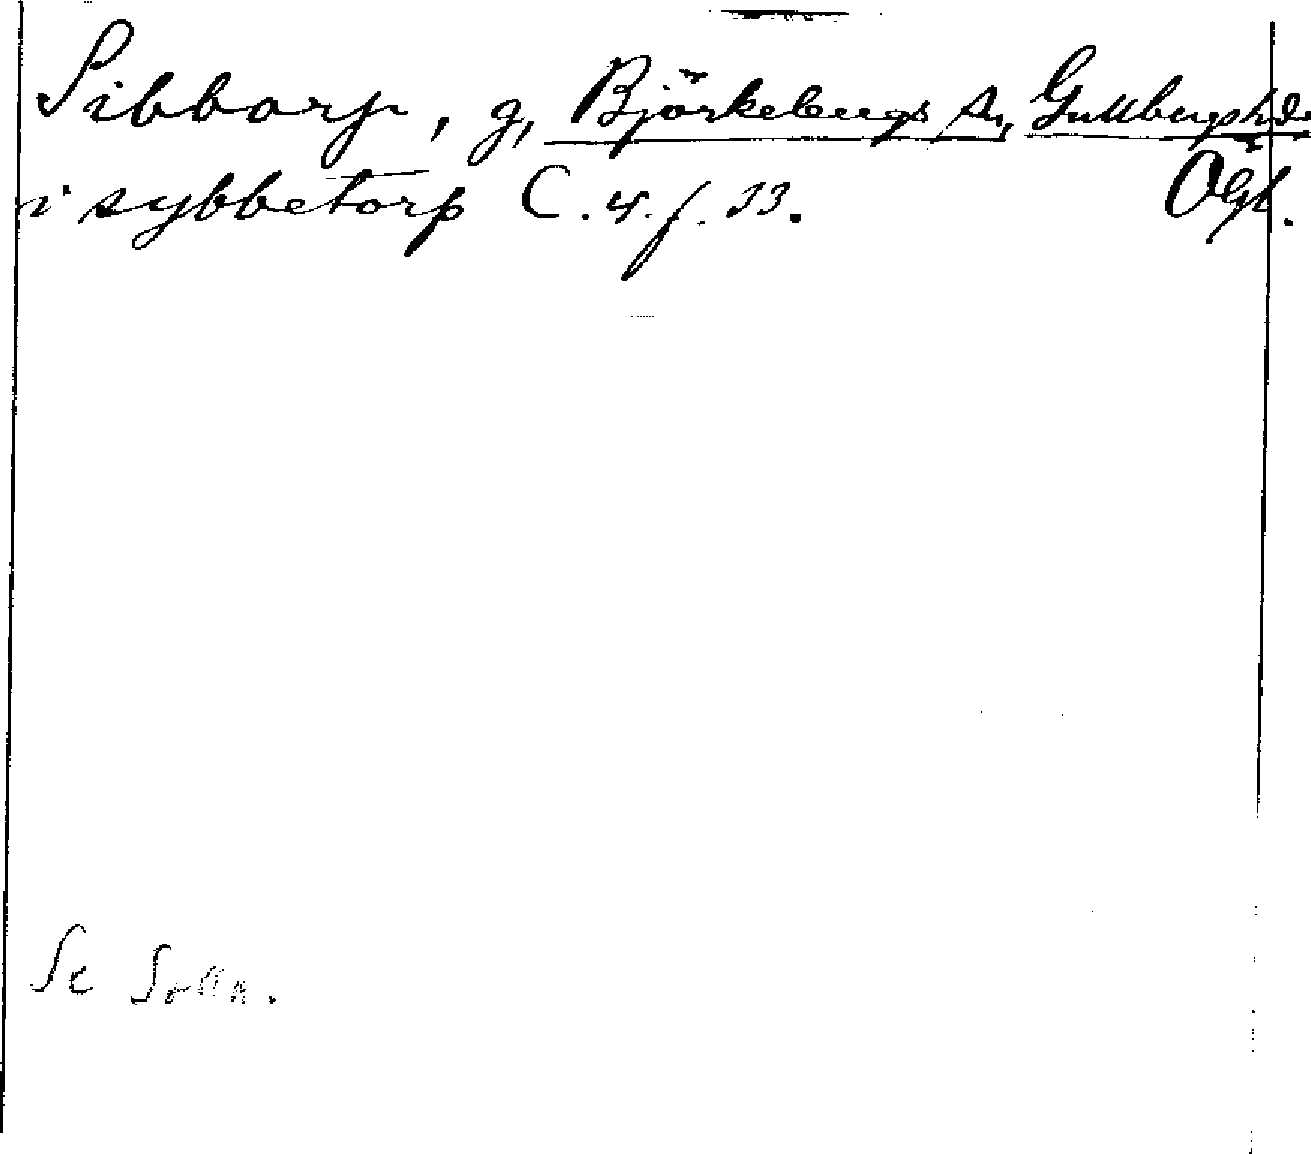 Sibborp, g, Björkebergs sn, Gullbergs hd.
i sybbetorp C. 4. f. 33. Ögl.
Se Solln.